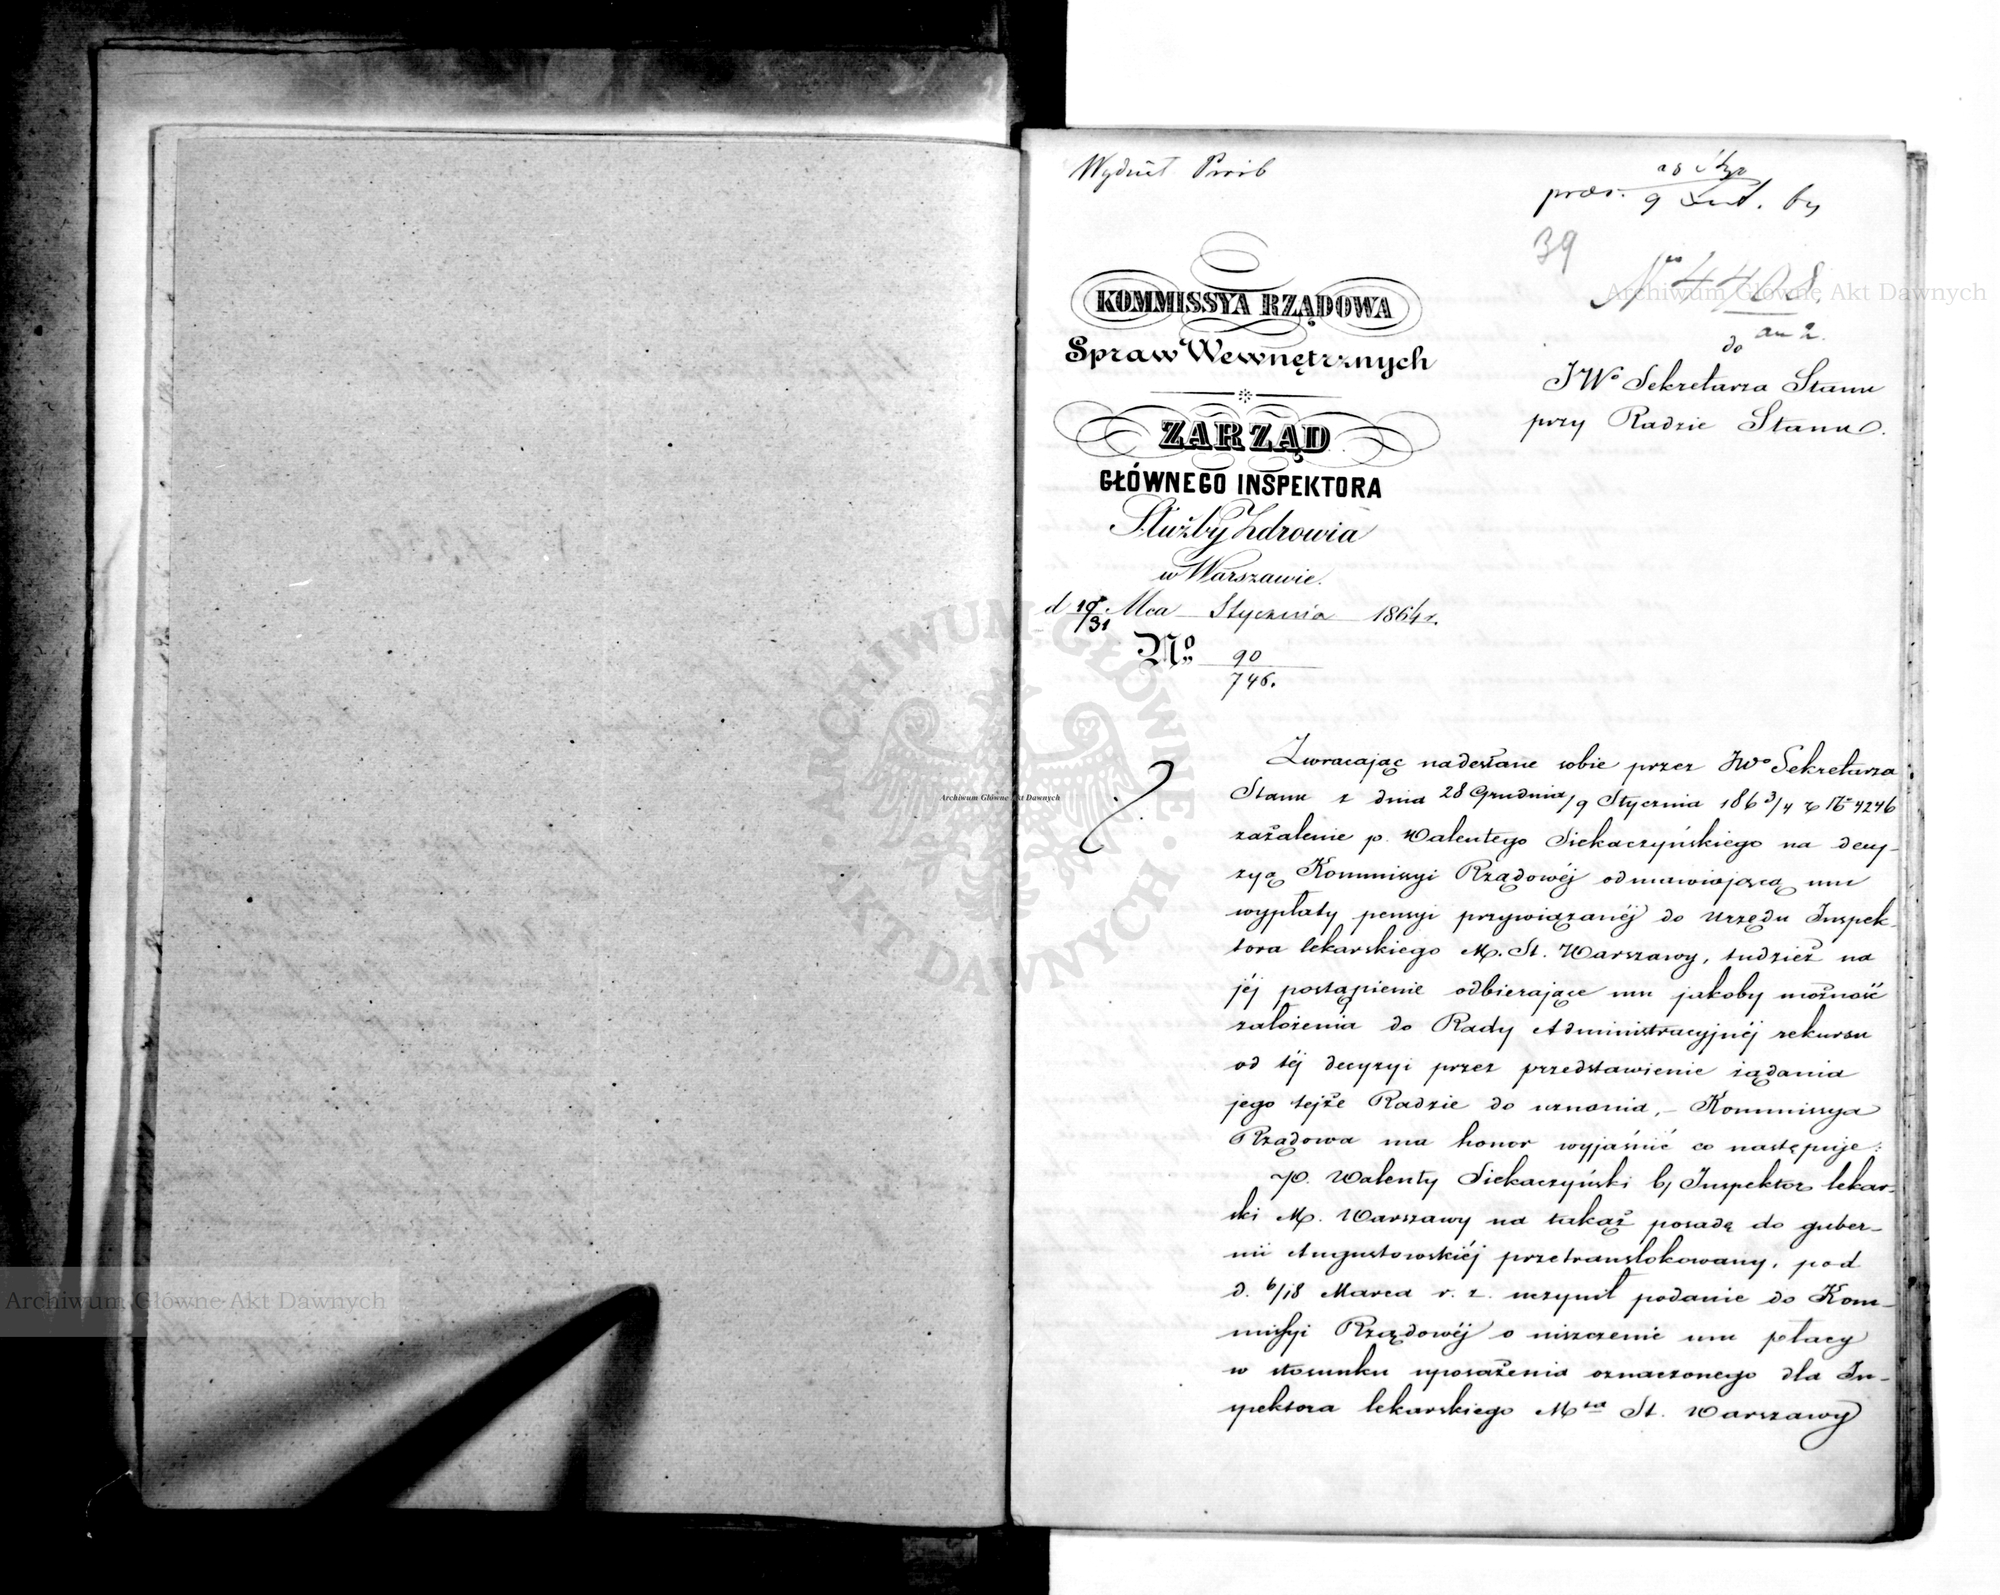 39
No 4408
do
JWo Sekretarza Stanu
przy Radzie Stanu.
KOMMISSYA RZĄDOWA
Spraw Wewnętrznych
ZARZĄD
GŁÓWNEGO INSPEKTORA
Służby Zdrowia
w Warszawie.
d 19/31 Mca Stycznia 1864 r.
No 90
746.
Zwracając nadesłane sobie przez JWo Sekretarza
Stanu z dnia 28 Grudnia/9 Stycznia 186 3/4 r No 4246
zażalenie p. Walentego Siekaczyńskiego na decy-
zyą Kommissyi Rządowéj odmawiającą mu
wypłaty pensyi przywiązanéj do Urzędu Inspek-
tora lekarskiego M. St. Warszawy, tudzież na
jéj postąpienie odbierające mu jakoby możność
założenia do Rady Administracyjnéj rekursu
od téj decyzyi przez przedstawienie żądania
jego tejże Radzie do uznania, – Kommissya
Rządowa ma honor wyjaśnić co następuje:
P. Walenty Siekaczyński b. Inspektor lekar-
ski M. Warszawy na takąż posadę do guber-
nii Augustowskiéj przetranslokowany, pod
d. 6/18 Marca r. z. uczynił podanie do Kom-
missyi Rządowéj o uiszczenie mu płacy
w stosunku uposażenia oznaczonego dla In-
spektora lekarskiego Mta St. Warszawy
Archiwum Główne Akt Dawnych
Archiwum Główne Akt Dawnych
Archiwum Główne Akt Dawnych
ARCHIWUM GŁÓWNE AKT DAWNYCH